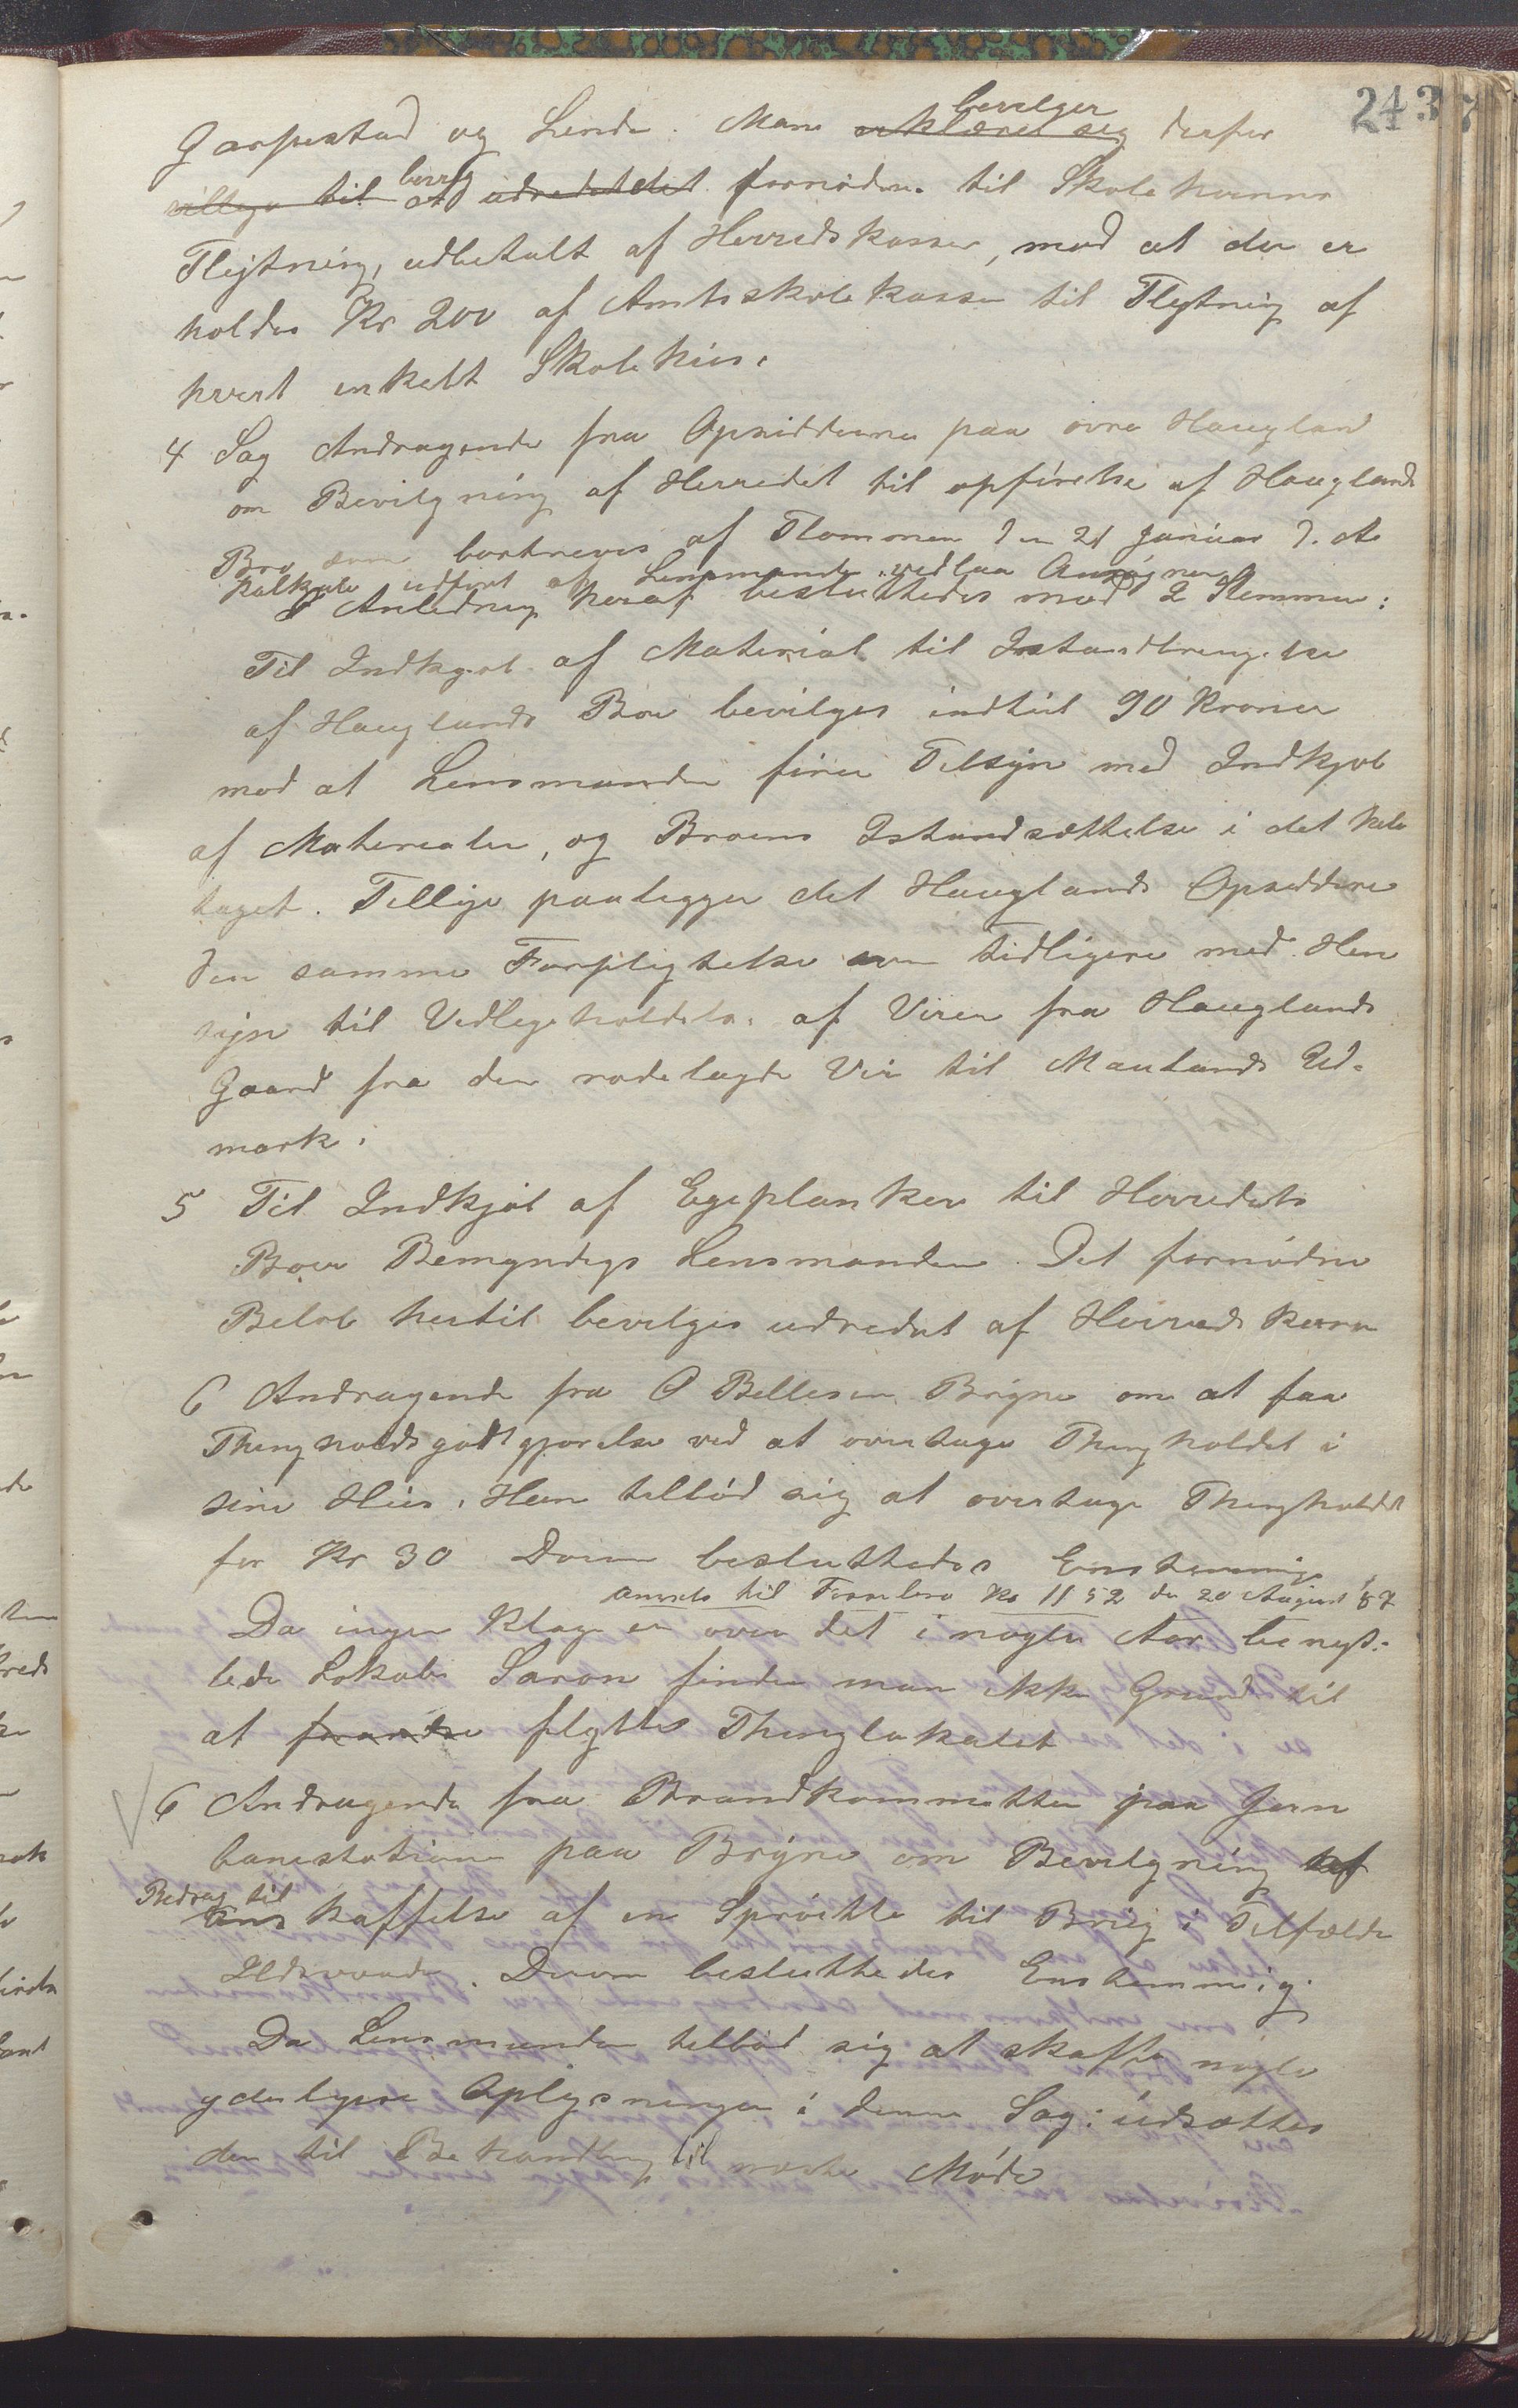 243
Garpestad og Linde. Man erklærer sig bevilger derfor
villige til at udredet det fornødne til Skolehusenes
Flytning, udbetalt af Herredskassen, mod at der er
holdes Kr 200 af Amtsskolekassen til Flytning af
hvert enkelt Skolehus.
4 Sag Andragende fra Opsidderne paa øvre Haugland
om Bevilgning af Herredet til opførelse af Hauglands
Bro som bortreves af Flommen den 21 Januar d. A.
Kalkyle udført af Lensmanden vedlaa Ansøgningen
I Anledning heraf besluttedes mod 2 Stemmer:
Til Indkjøb af Material til Istandbringelse
af Hauglands Bro bevilges indtil 90 Kroner
mod at Lensmanden fører Tilsyn med Indkjøb
af Materialer, og Broens Istandsættelse i det hele
taget. Tillige paalegges det Hauglands Opsiddere
den samme Forpligtelse som tidligere med Hen
syn til Vedligeholdelse af Veien fra Hauglands
Gaard fra den rodelagde Vei til Maulands Ud-
mark.
5 Til Indkjøb af Egeplanker til Herredets
Broer Bemyndiges Lensmanden. Det fornødne
Beløb hertil bevilges udredet af Herredskassen
6 Andragende fra O Bellesen Bryne om at faa
Thingholdsgodtgjørelse ved at overtage Thingholdet i
sine Hus. Han tilbød sig at overtage Thingholdet
for Kr 30 Derom besluttedes Enstemmig
anvist til Kr 11 52 den 20 August 87
Da ingen Klage er over det i nogle Aar benyt-
tede Lokale Saron finder man ikke Grund til
at flyttes Thinglokalet
6 Andragende fra Brandkommitten paa Jern
banestationen paa Bryne om Bevilgning af
Bedrag til
Anskaffelse af en Sprøitte til Brug i Tilfælde
Ildsvaade. Derom besluttedes Enstemmig.
Da Lensmanden tilbød sig at skaffe nogle
yderligere Oplysninger i denne Sag; udsættes
den til Behandling til næste Møde